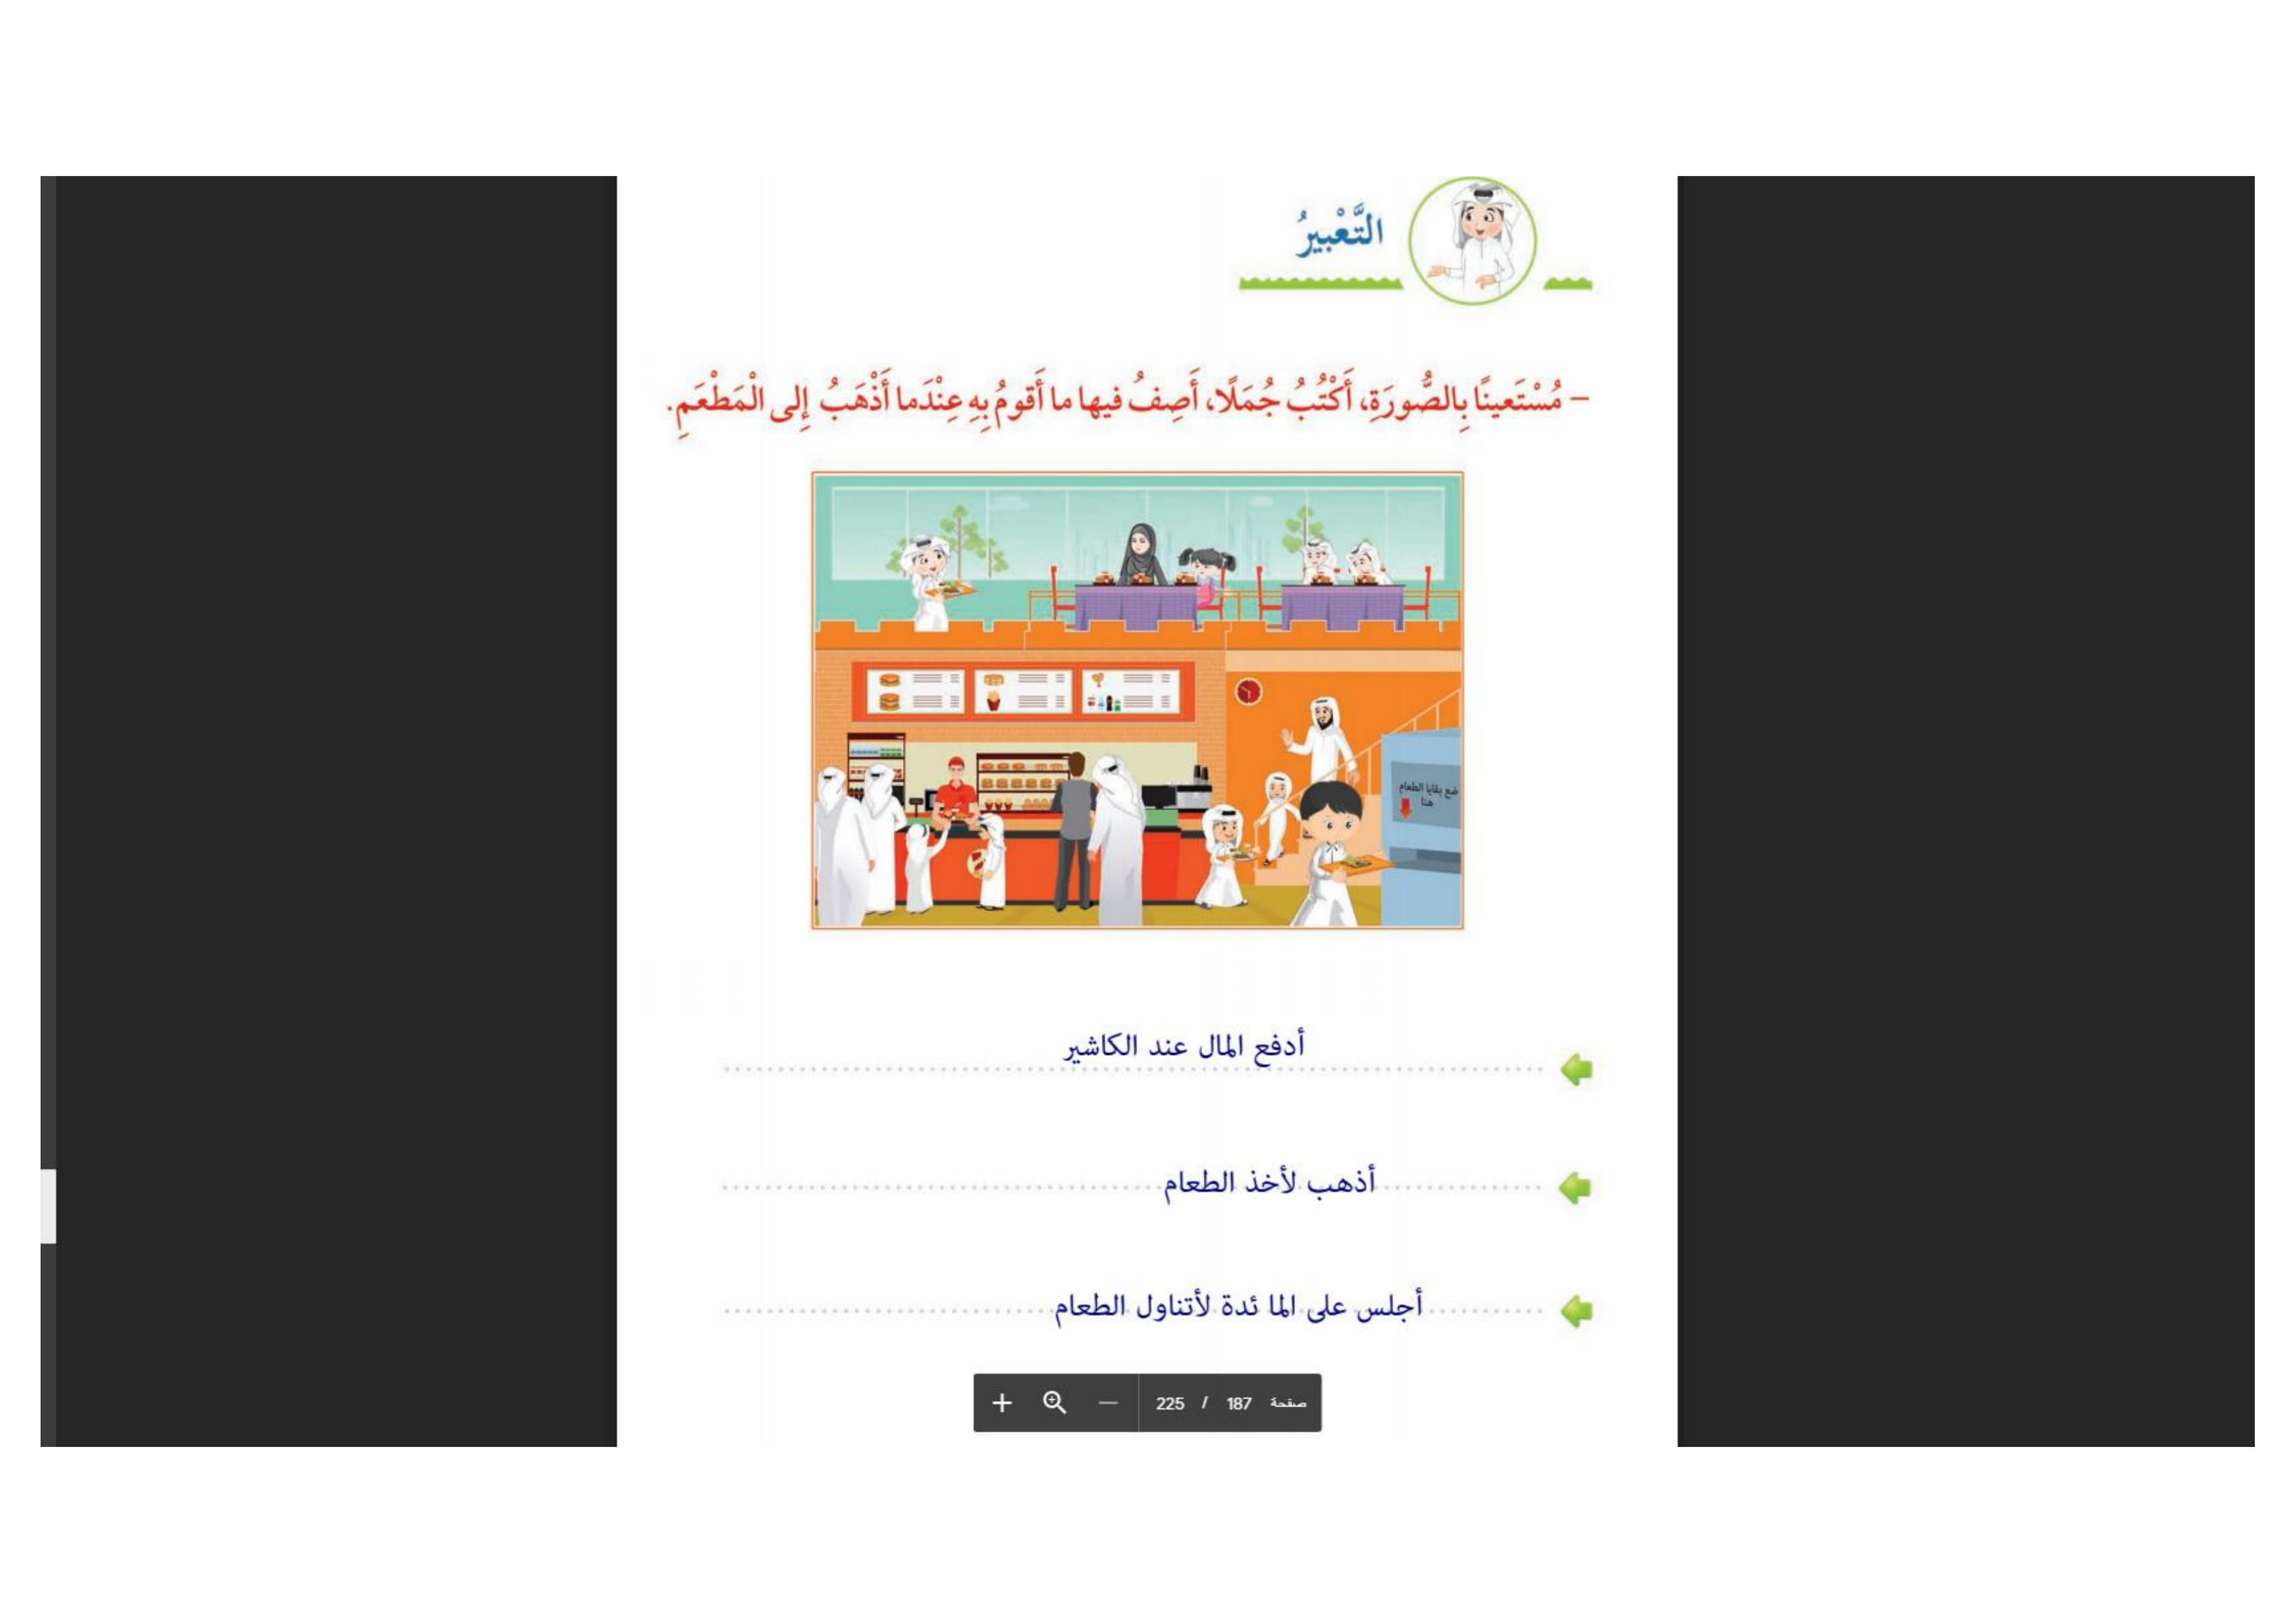 التَّعْبيرُ
– مُسْتَعينًا بِالصُّورَةِ، أَكْتُبُ جُمَلًا، أَصِفُ فيها ما أَقومُ بِهِ عِنْدَما أَذْهَبُ إِلى الْمَطْعَمِ.
ضع بقايا الطعام
هنا
أدفع المال عند الكاشير
أذهب لأخذ الطعام
أجلس على الما ئدة لأتناول الطعام
صفحة 187 / 225